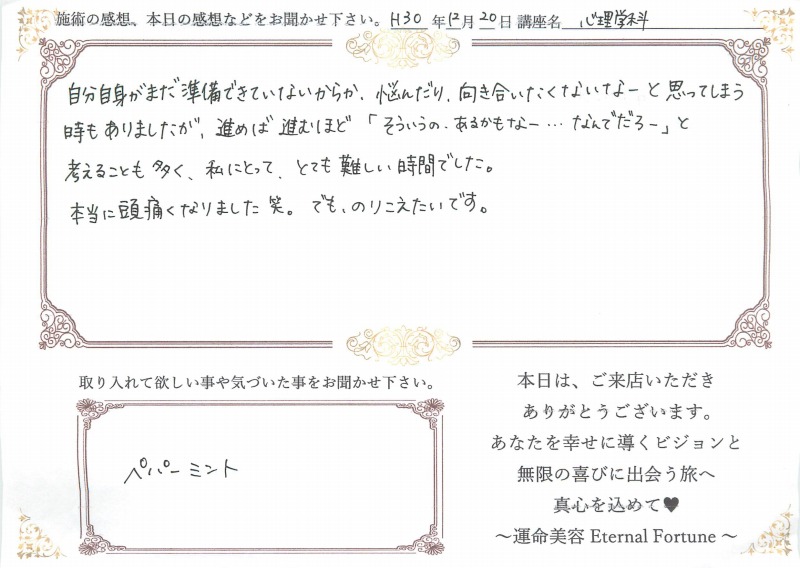 施術の感想、本日の感想などをお聞かせ下さい。H30年12月20日 講座名 心理学科
自分自身がまだ準備できていないからか、悩んだり、向き合いたくないなーと思ってしまう
時もありましたが、進めば進むほど「そういうの、あるかもなー…なんでだろー」と
考えることも多く、私にとって、とても難しい時間でした。
本当に頭痛くなりました笑。でも、のりこえたいです。
取り入れて欲しい事や気づいた事をお聞かせ下さい。
ペパーミント
本日は、ご来店いただき
ありがとうございます。
あなたを幸せに導くビジョンと
無限の喜びに出会う旅へ
真心を込めて♥
～運命美容 Eternal Fortune～